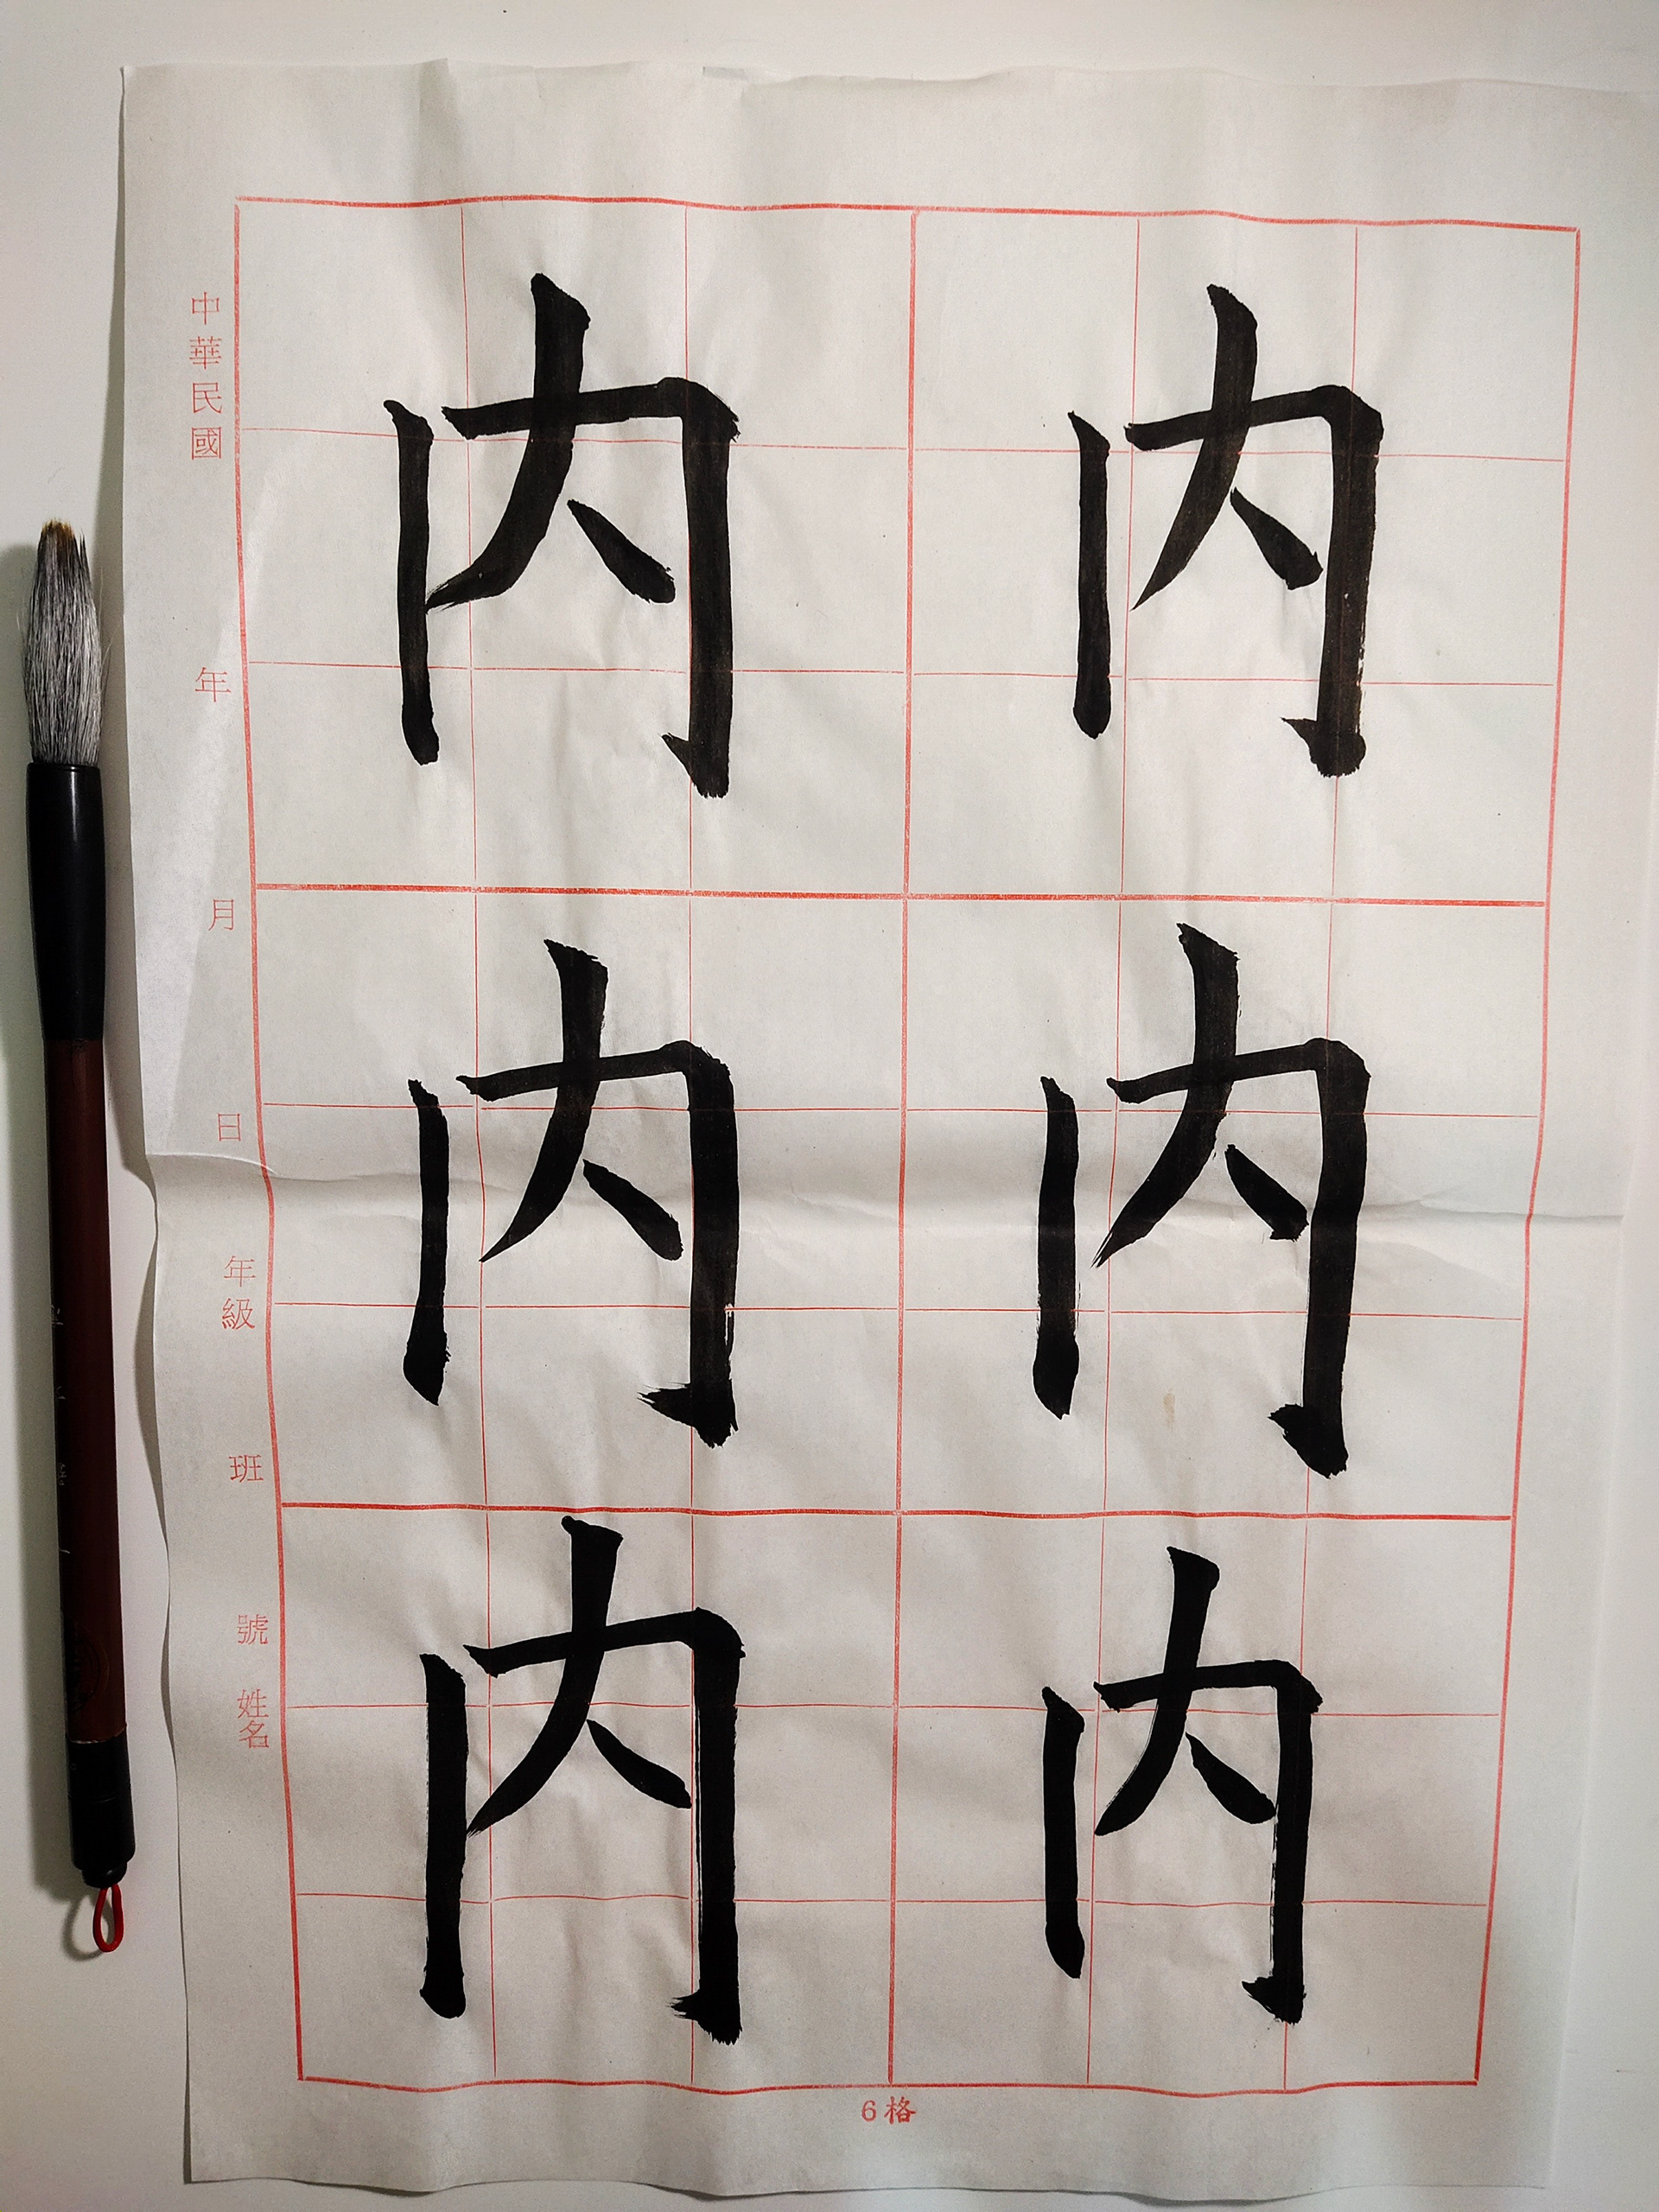 中華民國 年 月 日 年級 班 號 姓名
内 内
内 内
内 内
6格